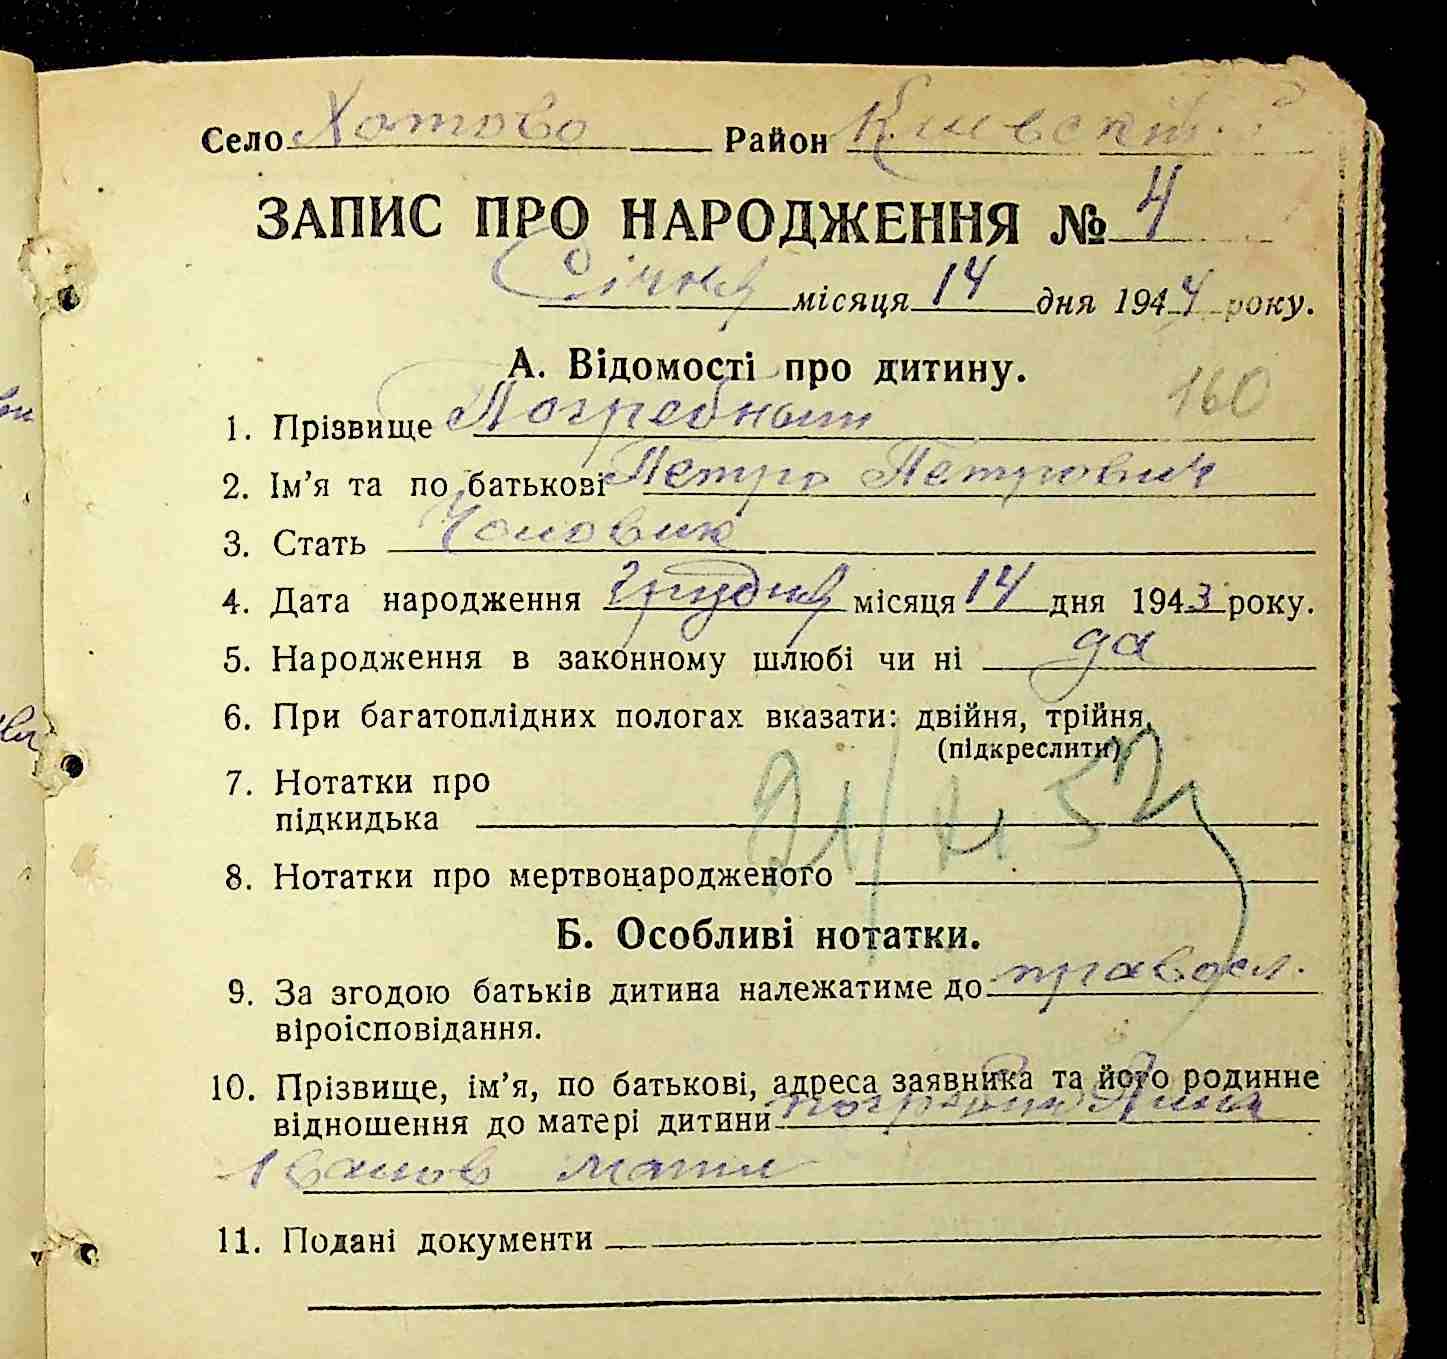 Село Хотово Район Киевский
ЗАПИС ПРО НАРОДЖЕННЯ № 4
Січня місяця 14 дня 1944 року.
А. Відомості про дитину.
160
1. Прізвище Погребный
2. Ім'я та по батькові Петро Петрович
3. Стать Чоловик
4. Дата народження грудня місяця 14 дня 1943 року.
5. Народження в законному шлюбі чи ні да
6. При багатоплідних пологах вказати: двійня, трійня,
(підкреслити)
7. Нотатки про
підкидька
8. Нотатки про мертвонародженого
Б. Особливі нотатки.
9. За згодою батьків дитина належатиме до правосл.
віроісповідання.
10. Прізвище, ім'я, по батькові, адреса заявника та його родинне
відношення до матері дитини
Іванов мати
11. Подані документи